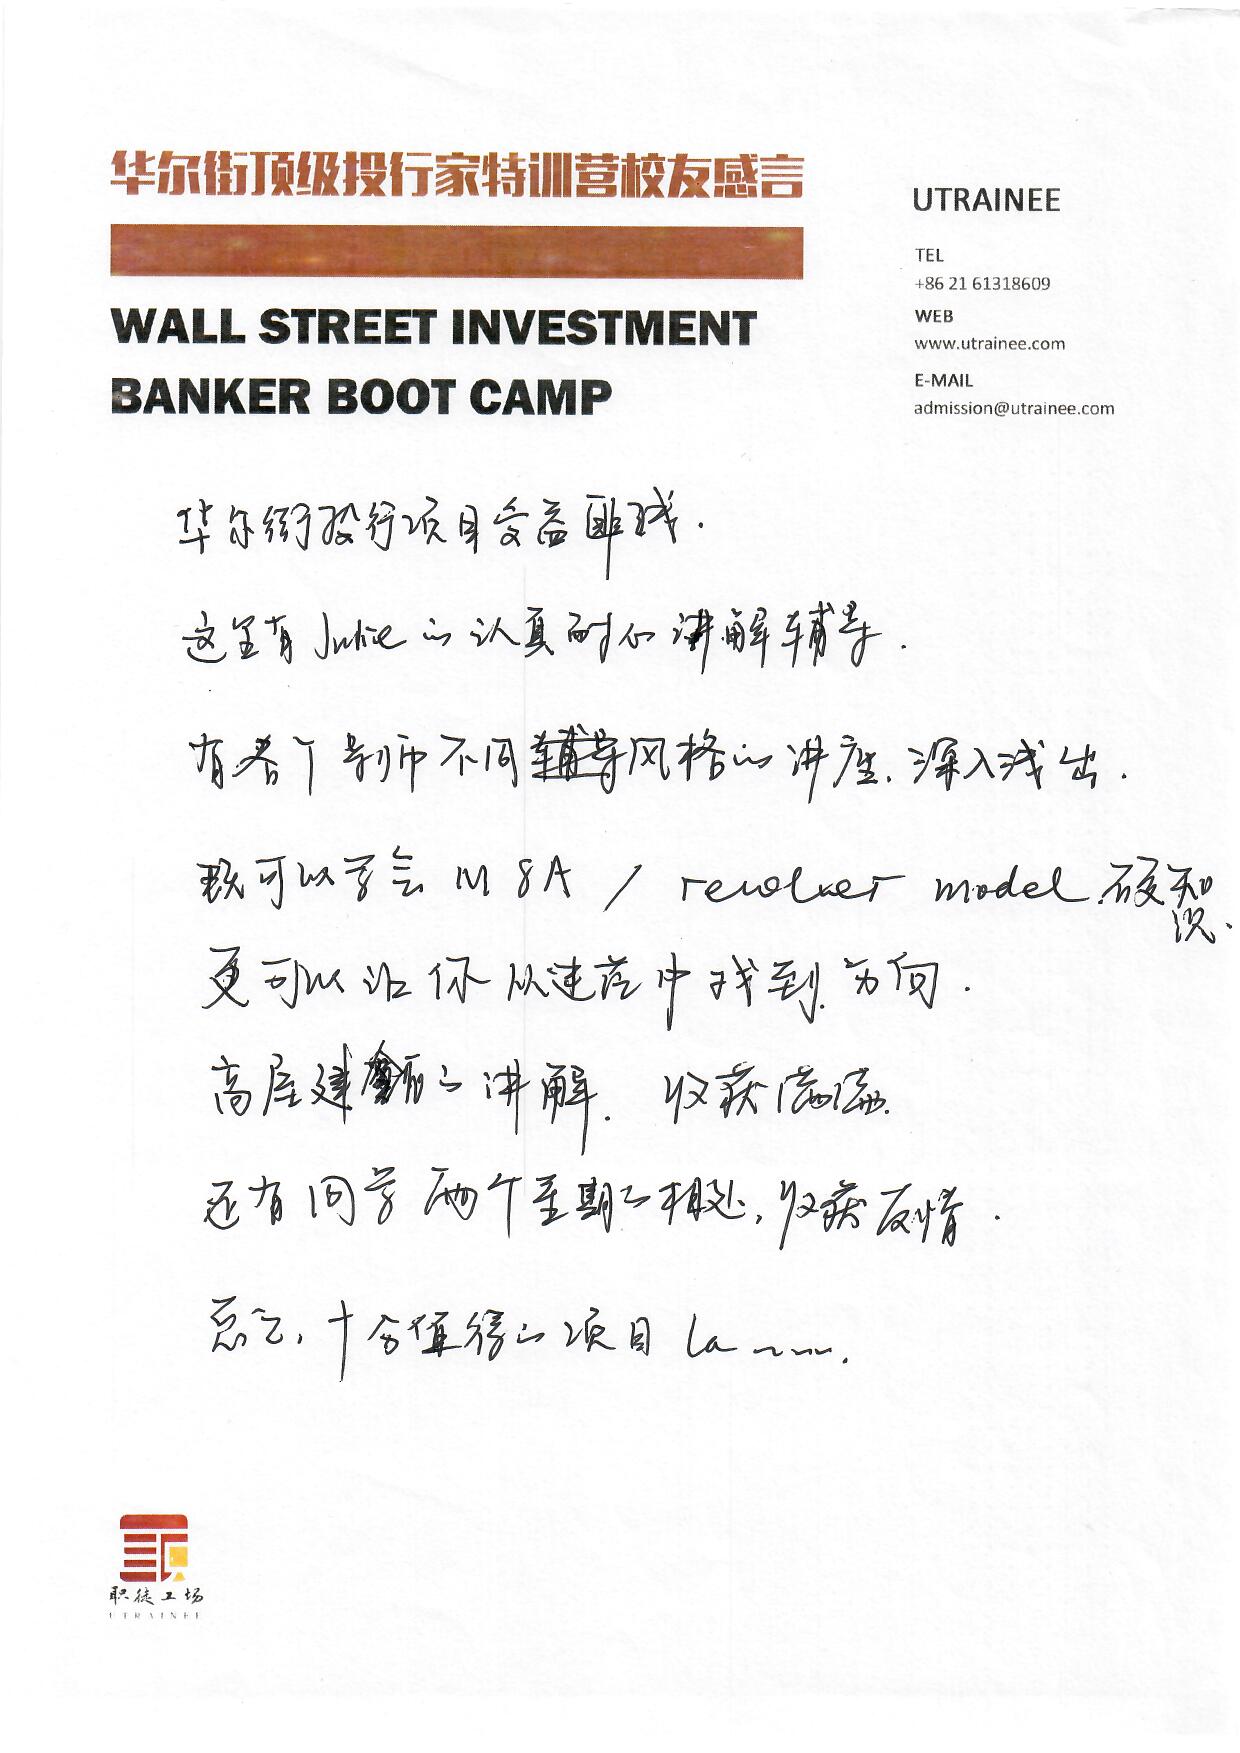 华尔街顶级投行家特训营校友感言
WALL STREET INVESTMENT
BANKER BOOT CAMP
UTRAINEE
TEL
+86 21 61318609
WEB
www.utrainee.com
E-MAIL
admission@utrainee.com
华尔街投行项目受益匪浅.
这里有Julie的认真耐心讲解辅导.
有各个导师不同辅导风格的讲座.深入浅出.
既可以学会 M&A / revolver model.硬知识.
更可以让你从迷茫中找到方向.
高屋建瓴的讲解. 收获满满.
还有同学两个星期的相处,收获友情.
总之,十分值得的项目 la~~~.
职徒工场
UTRAINEE